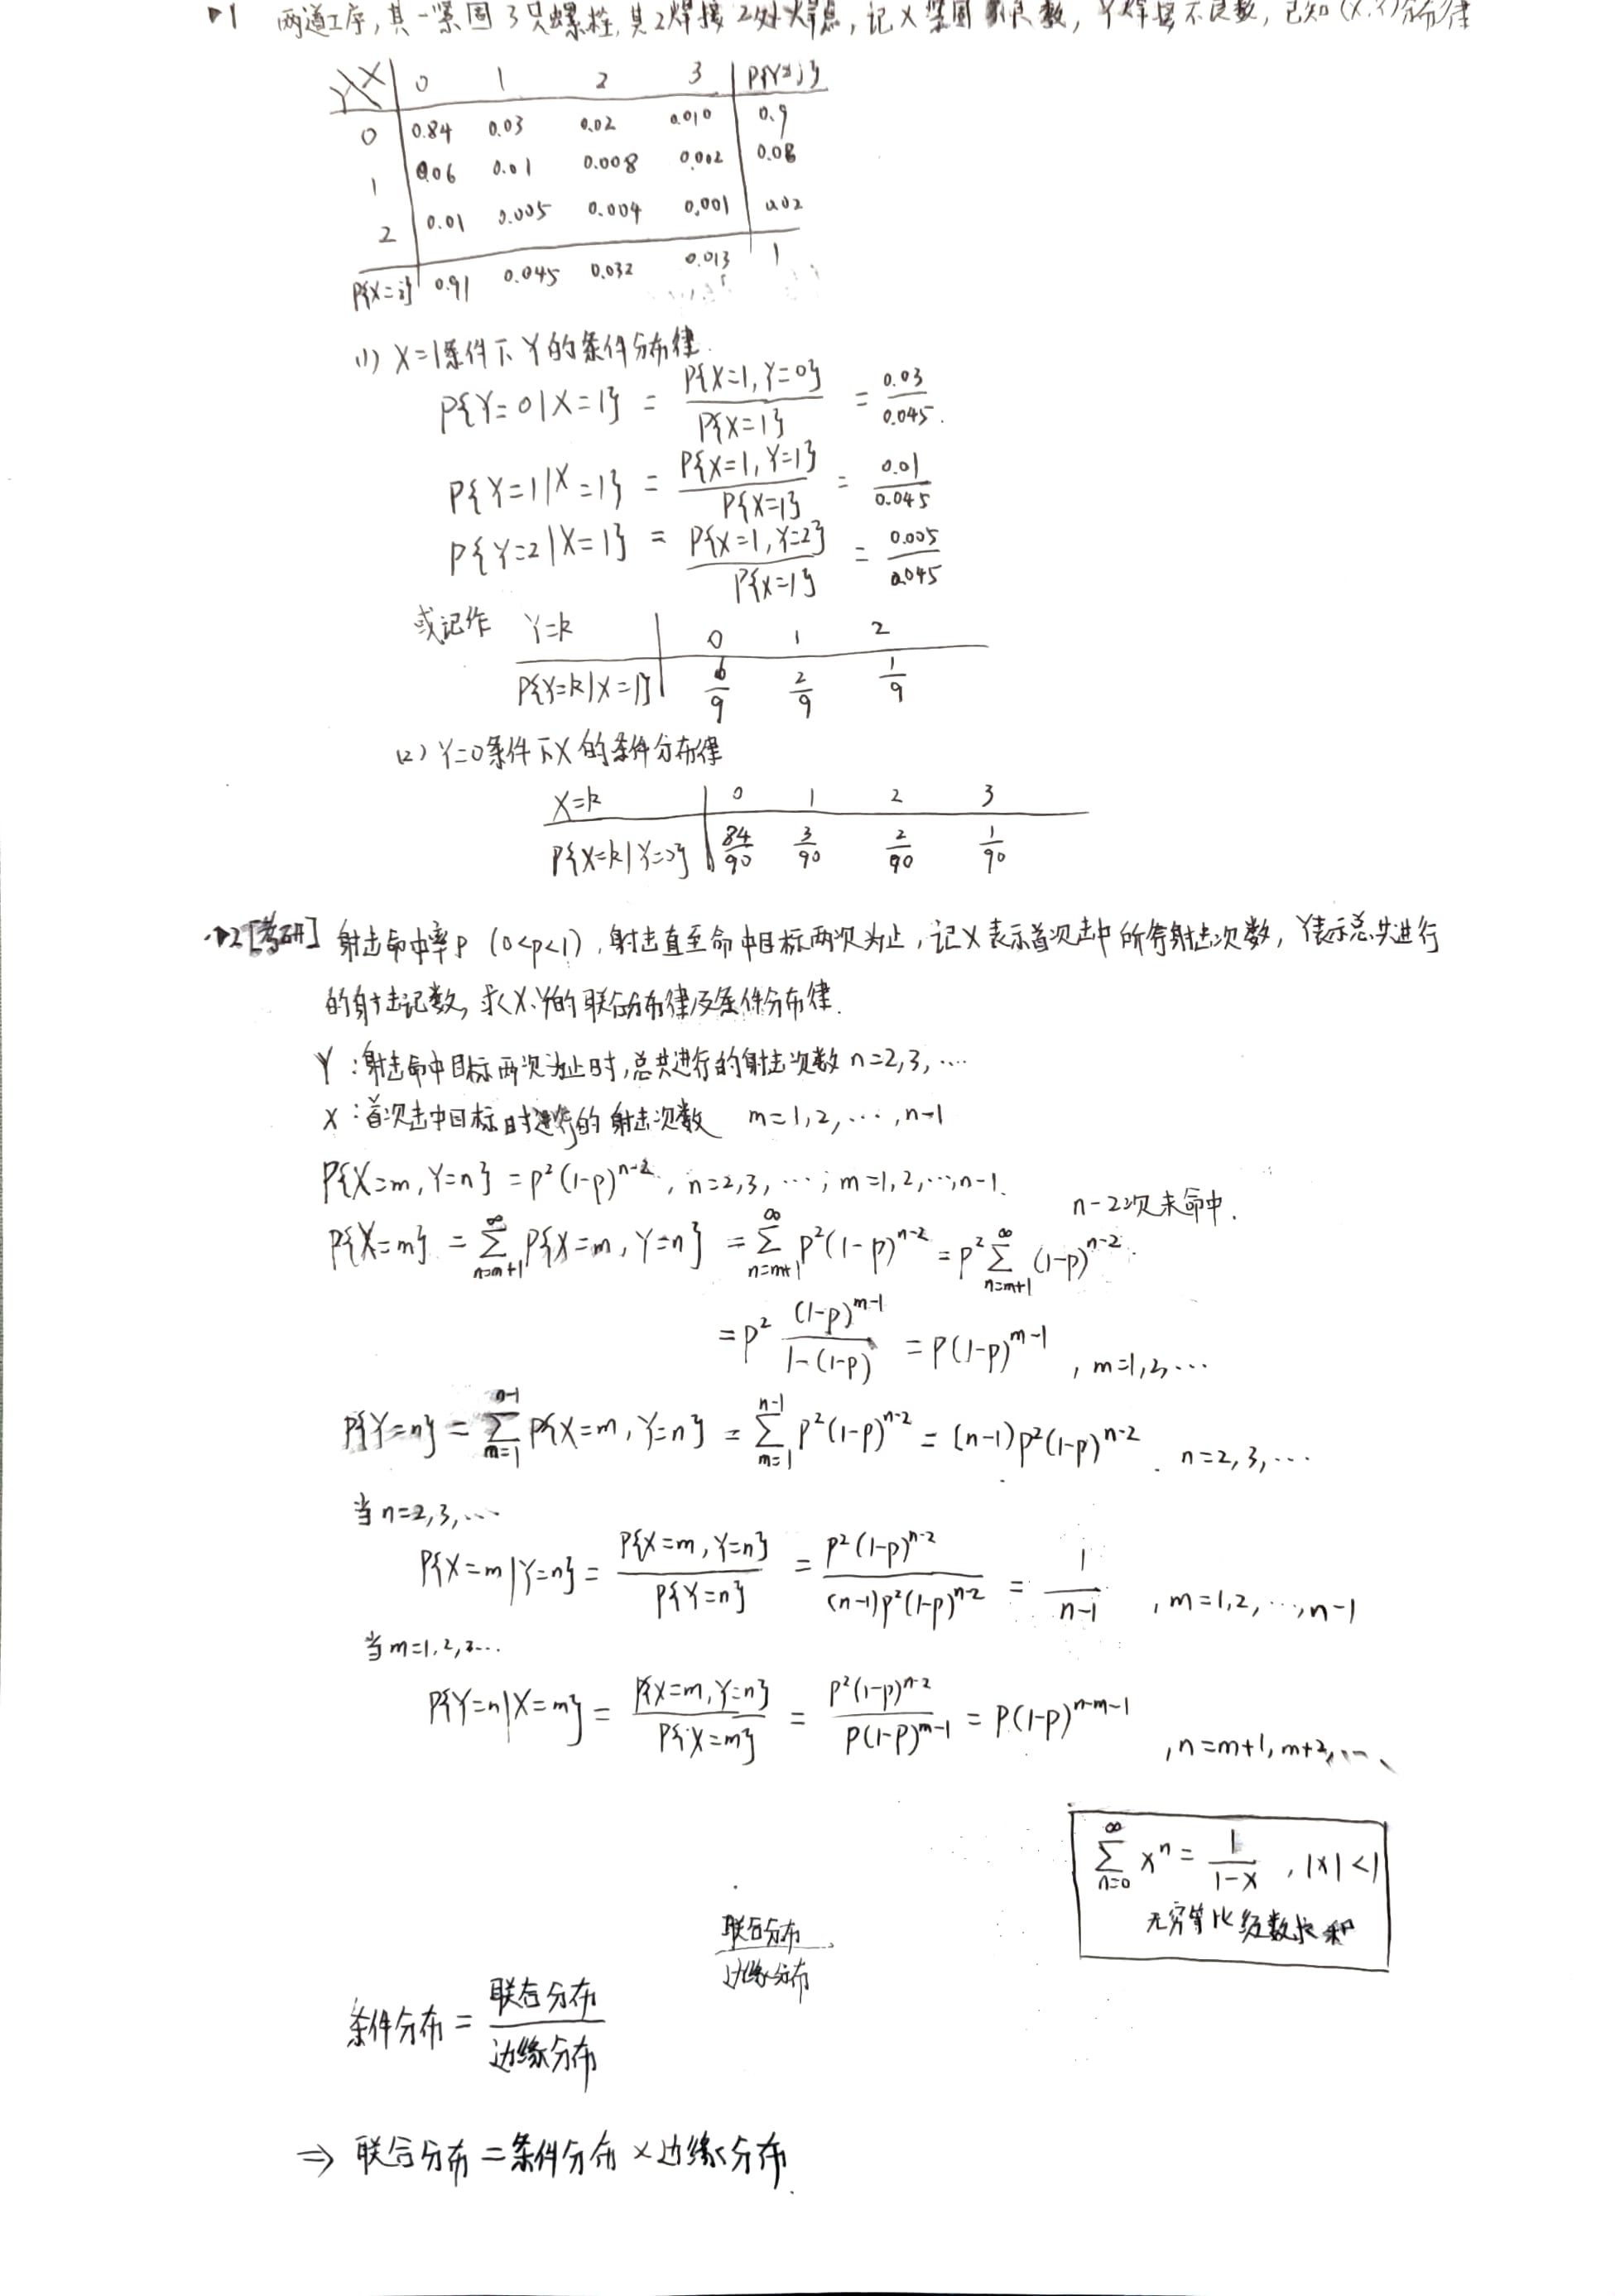 ▷1 两道工序,其一紧固3只螺栓,其2焊接2处焊点,记X紧固不良数,Y焊接不良数,已知(X,Y)分布律
Y\X 0 1 2 3 P{Y=j}
0 0.84 0.03 0.02 0.010 0.9
1 0.06 0.01 0.008 0.002 0.08
2 0.01 0.005 0.004 0.001 0.02
P{X=i} 0.91 0.045 0.032 0.013 1
(1) X=1条件下Y的条件分布律.
P{Y=0|X=1} = P{X=1,Y=0}/P{X=1} = 0.03/0.045.
P{Y=1|X=1} = P{X=1,Y=1}/P{X=1} = 0.01/0.045
P{Y=2|X=1} = P{X=1,Y=2}/P{X=1} = 0.005/0.045
或记作 Y=k 0 1 2
P{Y=k|X=1} 6/9 2/9 1/9
(2) Y=0条件下X的条件分布律
X=k 0 1 2 3
P{X=k|Y=0} 84/90 3/90 2/90 1/90
▷2[考研] 射击命中率p (0<p<1),射击直至命中目标两次为止,记X表示首次击中所需射击次数,Y表示总共进行
的射击记数,求X、Y的联合分布律及条件分布律.
Y:射击命中目标两次为止时,总共进行的射击次数 n=2,3,…
X:首次击中目标时进行的射击次数 m=1,2,…,n-1
P{X=m,Y=n} = p²(1-p)^{n-2}, n=2,3,…; m=1,2,…,n-1.
n-2次未命中.
P{X=m} = ∑_{n=m+1}^{∞} P{X=m,Y=n} = ∑_{n=m+1}^{∞} p²(1-p)^{n-2} = p² ∑_{n=m+1}^{∞} (1-p)^{n-2}
= p² (1-p)^{m-1}/(1-(1-p)) = p(1-p)^{m-1}, m=1,2,…
P{Y=n} = ∑_{m=1}^{n-1} P{X=m,Y=n} = ∑_{m=1}^{n-1} p²(1-p)^{n-2} = (n-1)p²(1-p)^{n-2}. n=2,3,…
当n=2,3,…
P{X=m|Y=n} = P{X=m,Y=n}/P{Y=n} = p²(1-p)^{n-2}/((n-1)p²(1-p)^{n-2}) = 1/(n-1), m=1,2,…,n-1
当m=1,2,3…
P{Y=n|X=m} = P{X=m,Y=n}/P{X=m} = p²(1-p)^{n-2}/(p(1-p)^{m-1}) = p(1-p)^{n-m-1}, n=m+1,m+2,…
∑_{n=0}^{∞} x^n = 1/(1-x), |x|<1
无穷等比级数求和
联合分布/边缘分布
条件分布 = 联合分布/边缘分布
⇒ 联合分布=条件分布×边缘分布.